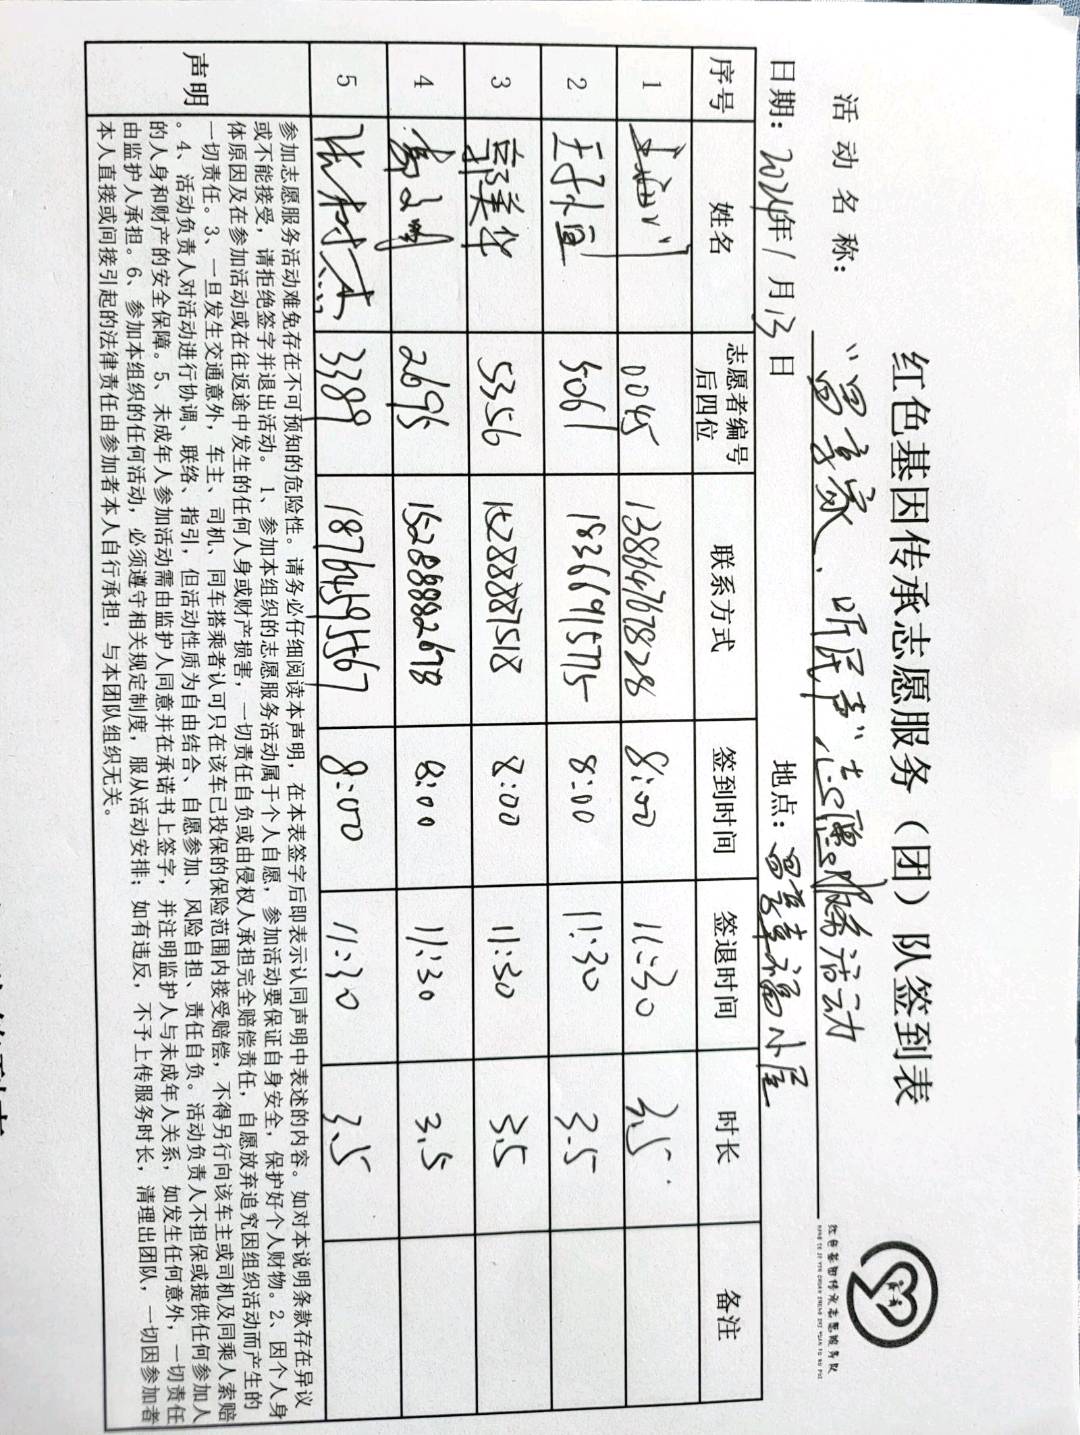 红色基因传承志愿服务（团）队签到表
红色基因传承志愿服务队
活动名称：
听民声"志愿服务活动
日期：2024年1月13日 地点：幸福小屋
序号 姓名 志愿者编号后四位 联系方式 签到时间 签退时间 时长 备注
1 0045 13864767828 8:00 11:30 3.5
2 5061 18366915775 8:00 11:30 3.5
3 郭美华 5356 15288887518 8:00 11:30 3.5
4 2695 15288882678 8:00 11:30 3.5
5 3389 18764595567 8:00 11:30 3.5
声明
参加志愿服务活动难免存在不可预知的危险性。请务必仔细阅读本声明，在本表签字后即表示认同声明中表述的内容。如对本说明条款存在异议
或不能接受，请拒绝签字并退出活动。1、参加本组织的志愿服务活动属于个人自愿，参加活动要保证自身安全，保护好个人财物。2、因个人身
体原因及在参加活动或在往返途中发生的任何人身或财产损害，一切责任自负或由侵权人承担完全赔偿责任，自愿放弃追究因组织活动而产生的
一切责任。3、一旦发生交通意外，车主、司机、同车搭乘者认可只在该车已投保的保险范围内接受赔偿，不得另行向该车主或司机及同乘人索赔
。4、活动负责人对活动进行协调、联络、指引，但活动性质为自由结合、自愿参加、风险自担、责任自负。活动负责人不担保或提供任何参加人
的人身和财产的安全保障。5、未成年人参加活动需由监护人同意并在承诺书上签字，并注明监护人与未成年人关系，如发生任何意外，一切责任
由监护人承担。6、参加本组织的任何活动，必须遵守相关规定制度，服从活动安排；如有违反，不予上传服务时长，清理出团队，一切因参加者
本人直接或间接引起的法律责任由参加者本人自行承担，与本团队组织无关。